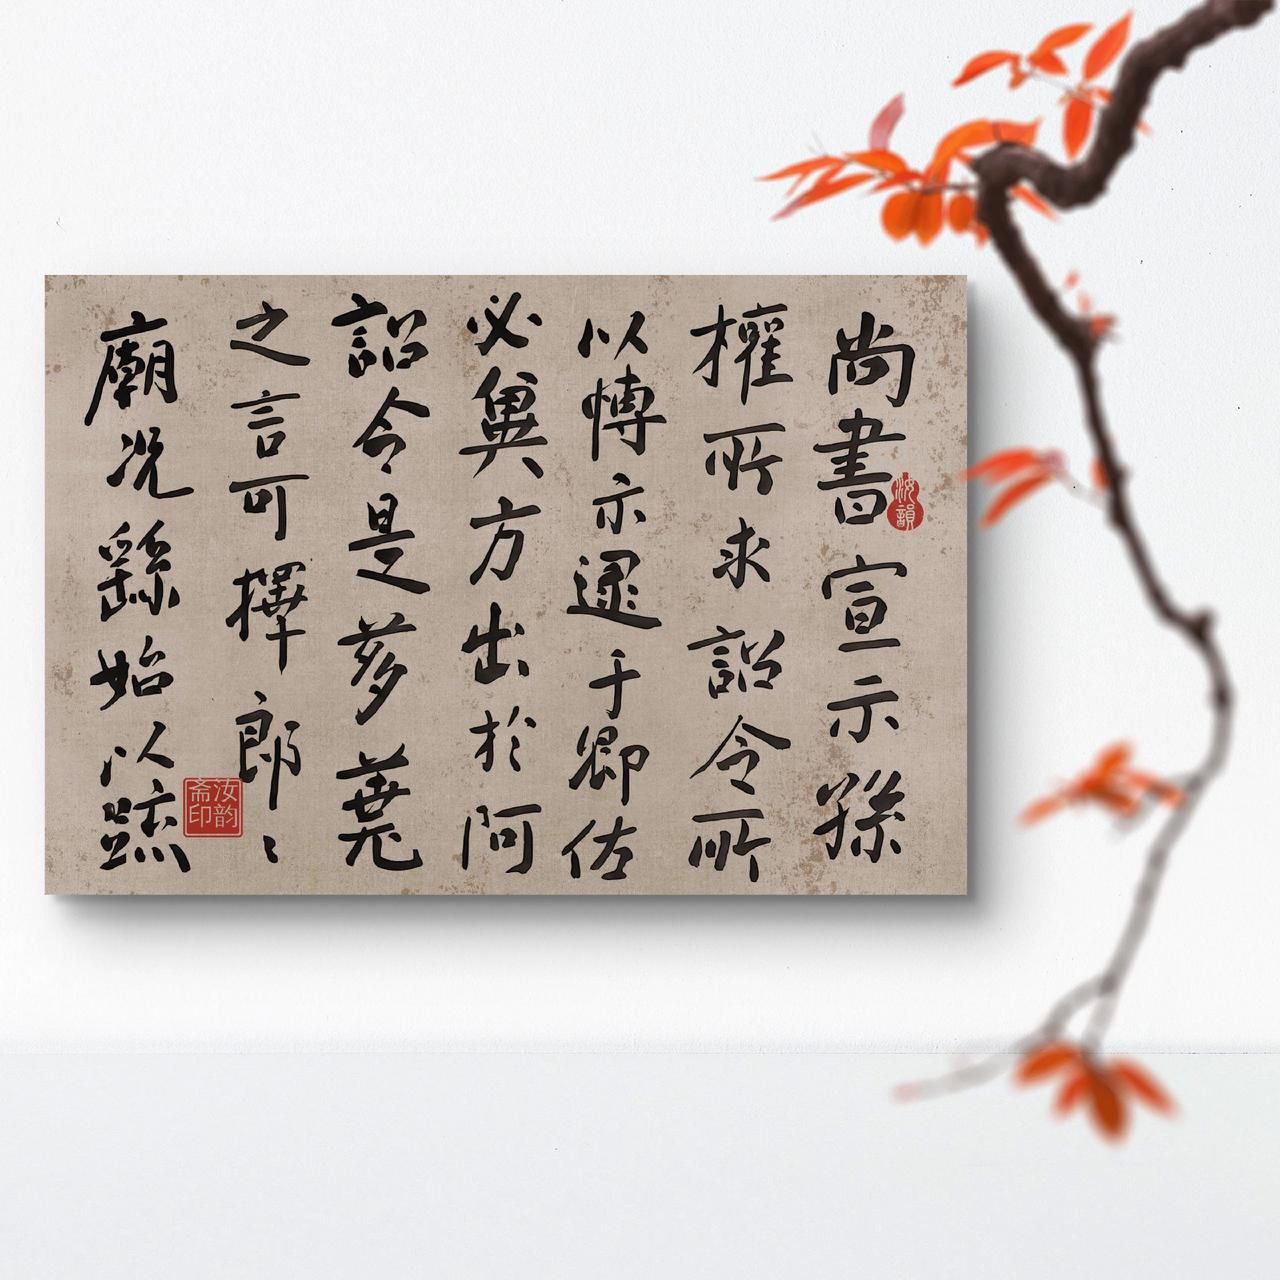 尚書宣示孫
權所求詔令所
以愽示逮于卿佐
必冀方出於阿
詔令是芻蕘
之言可擇郎〻
廟況繇始以疏
汝韻
汝韵斋印